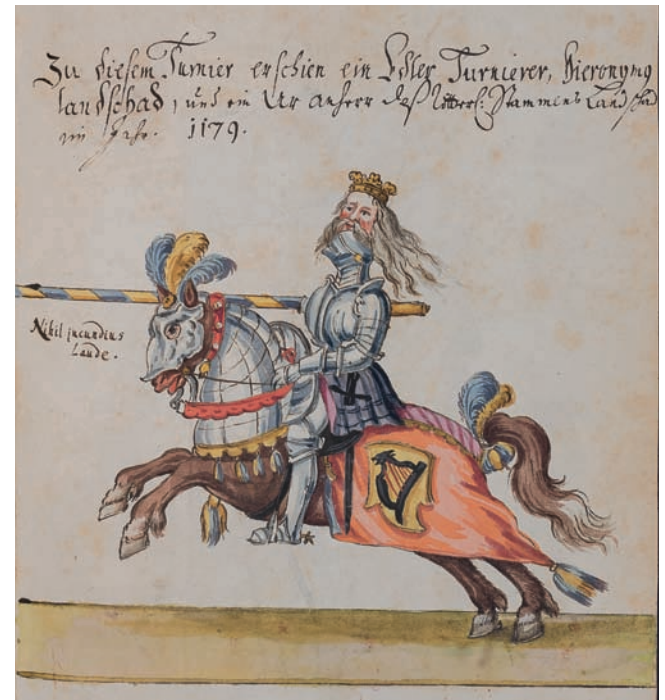 Zu diesem Turnier erschien ein Edler Turnierer, Hieronymg
landschad, und ein Ur anherr deß Stammens Landschad
im Jahr. 1179.
Nihil jucundius
Laude.